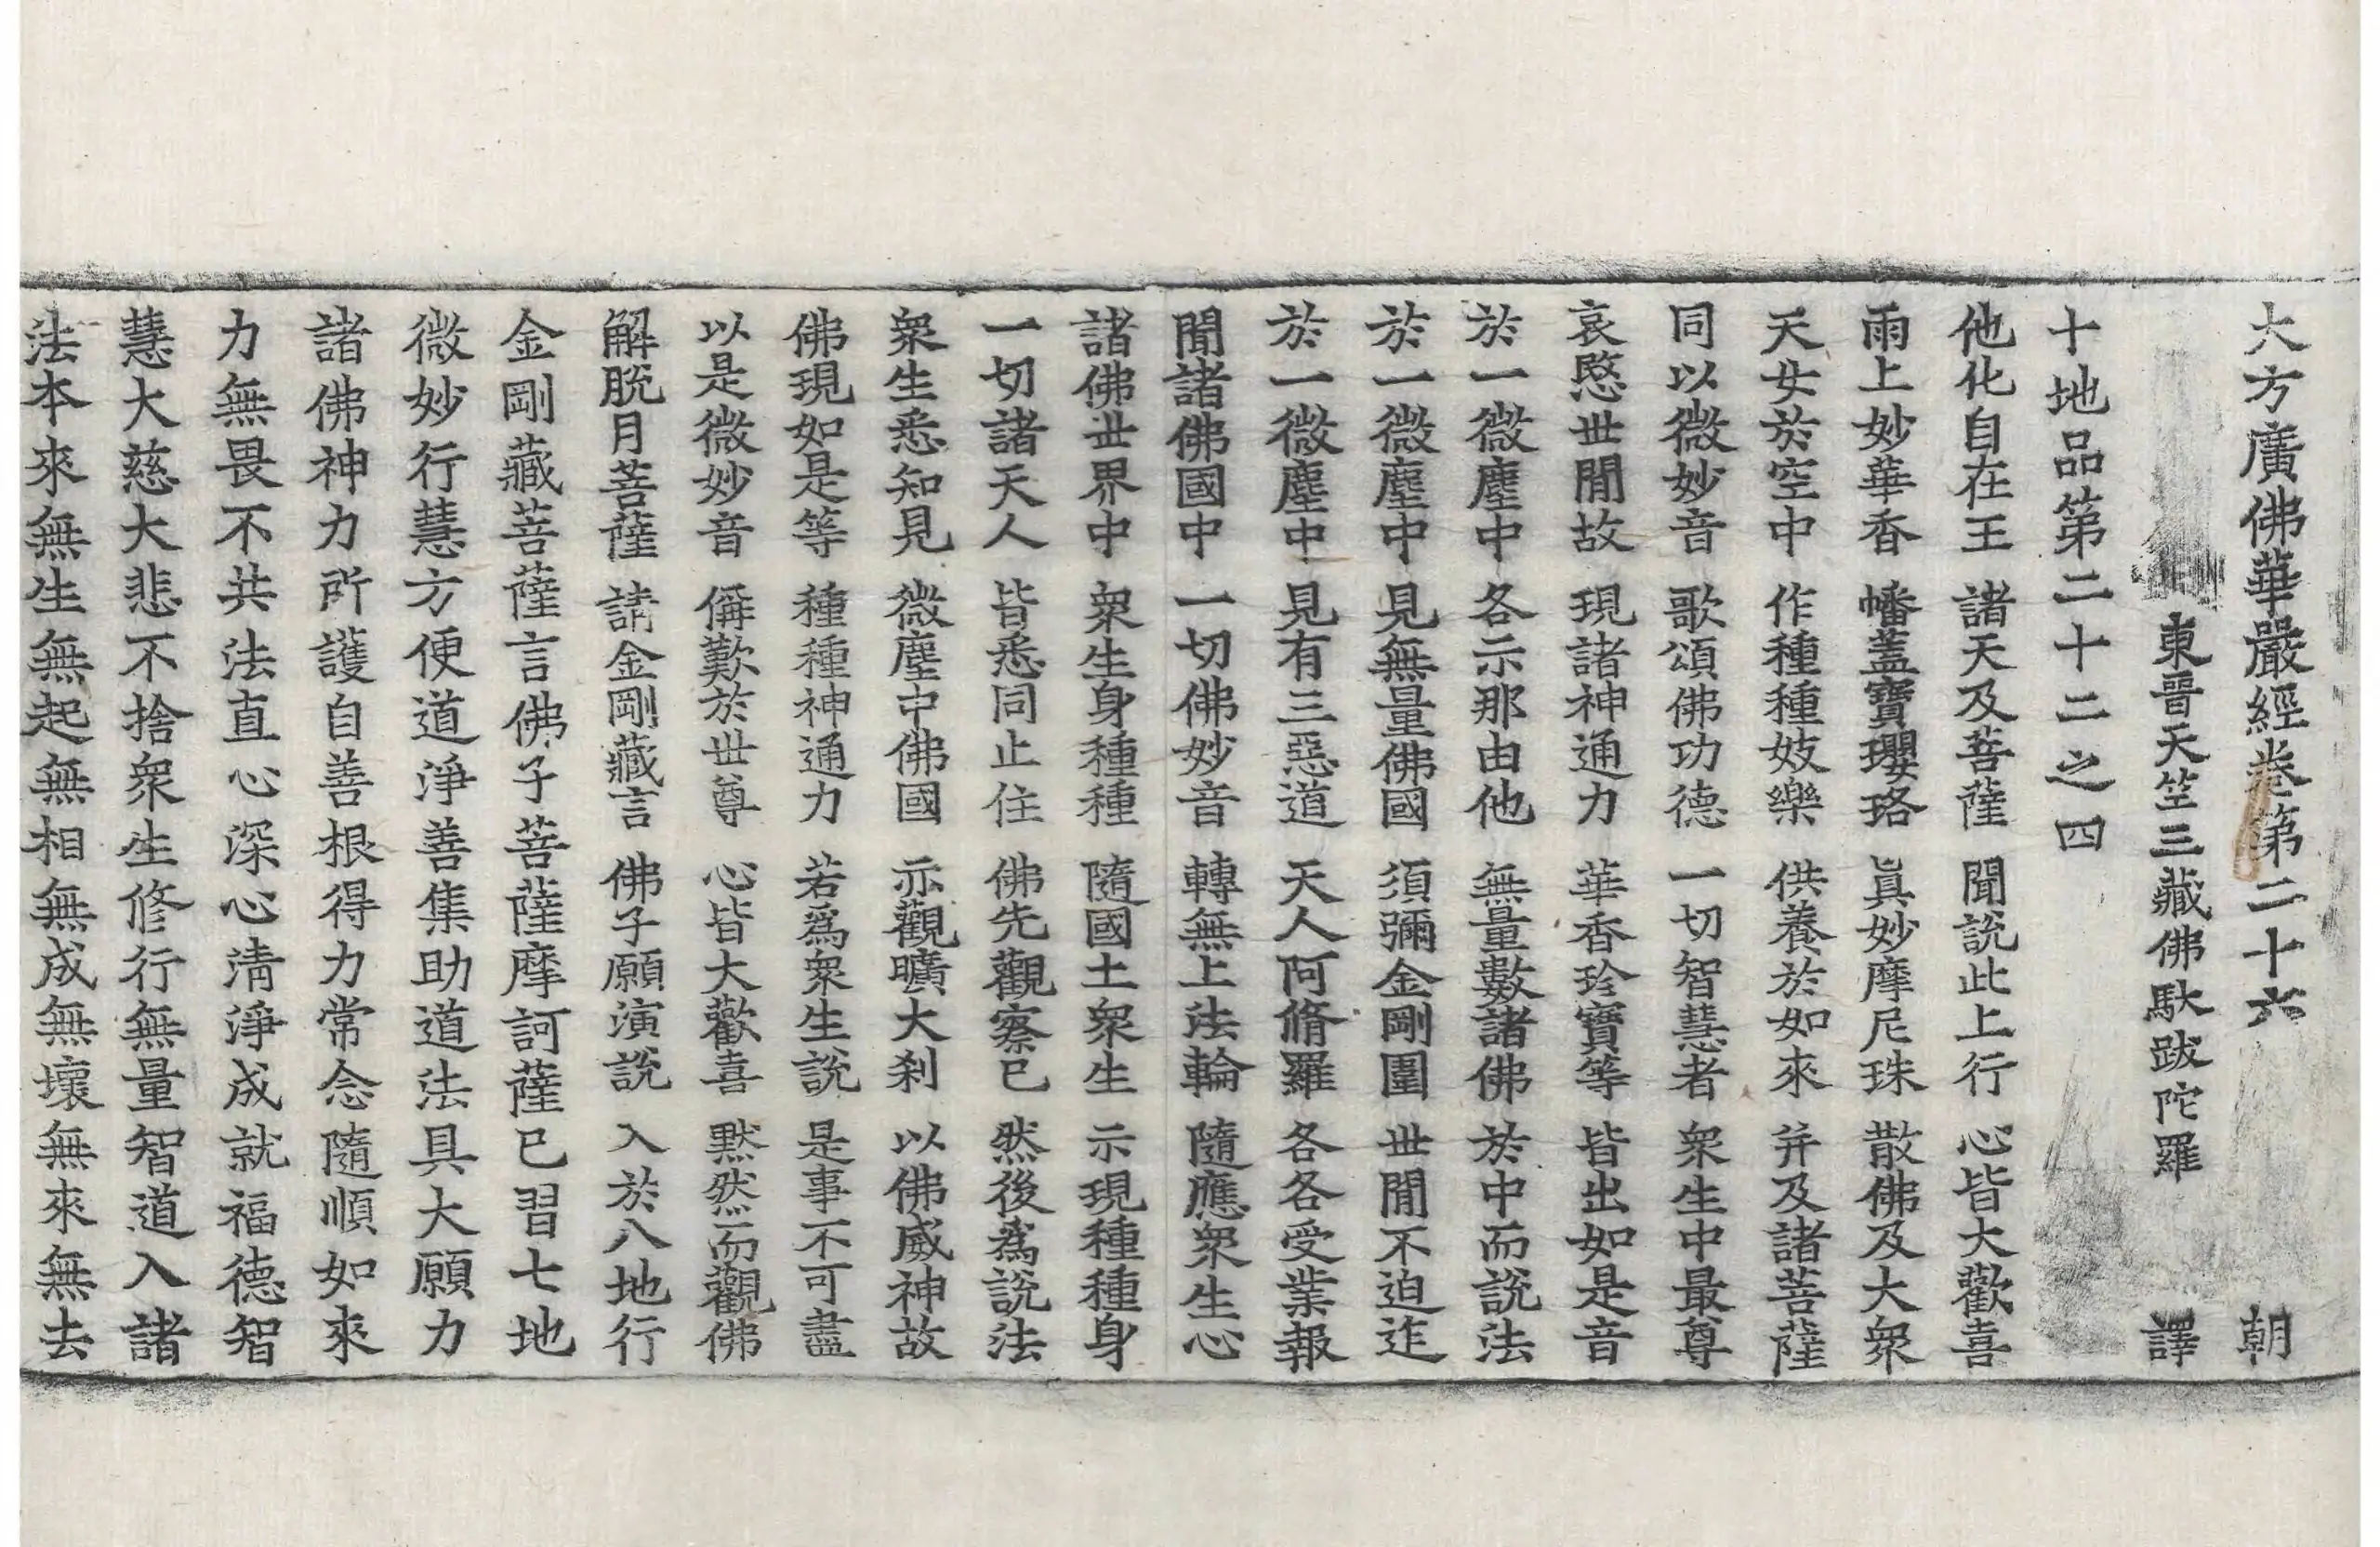 大方廣佛華嚴經卷第二十六 朝
東晉天竺三藏佛馱跋陀羅 譯
十地品第二十二之四
他化自在王 諸天及菩薩 聞説此上行 心皆大歡喜
雨上妙華香 幡蓋寶瓔珞 眞妙摩尼珠 散佛及大衆
天女於空中 作種種妓樂 供養於如來 并及諸菩薩
同以微妙音 歌頌佛功德 一切智慧者 衆生中最尊
哀愍世閒故 現諸神通力 華香珍寶等 皆出如是音
於一微塵中 各示那由他 無量數諸佛 於中而説法
於一微塵中 見無量佛國 須彌金剛圍 世閒不迫迮
於一微塵中 見有三惡道 天人阿脩羅 各各受業報
聞諸佛國中 一切佛妙音 轉無上法輪 隨應衆生心
諸佛世界中 衆生身種種 隨國土衆生 示現種種身
一切諸天人 皆悉同止住 佛先觀察已 然後爲説法
衆生悉知見 微塵中佛國 亦觀曠大刹 以佛威神故
佛現如是等 種種神通力 若爲衆生説 是事不可盡
以是微妙音 偁歎於世尊 心皆大歡喜 默然而觀佛
解脱月菩薩 請金剛藏言 佛子願演説 入於八地行
金剛藏菩薩言佛子菩薩摩訶薩已習七地
微妙行慧方便道淨善集助道法具大願力
諸佛神力所護自善根得力常念隨順如來
力無畏不共法直心深心清淨成就福德智
慧大慈大悲不捨衆生修行無量智道入諸
法本來無生無起無相無成無壞無來無去